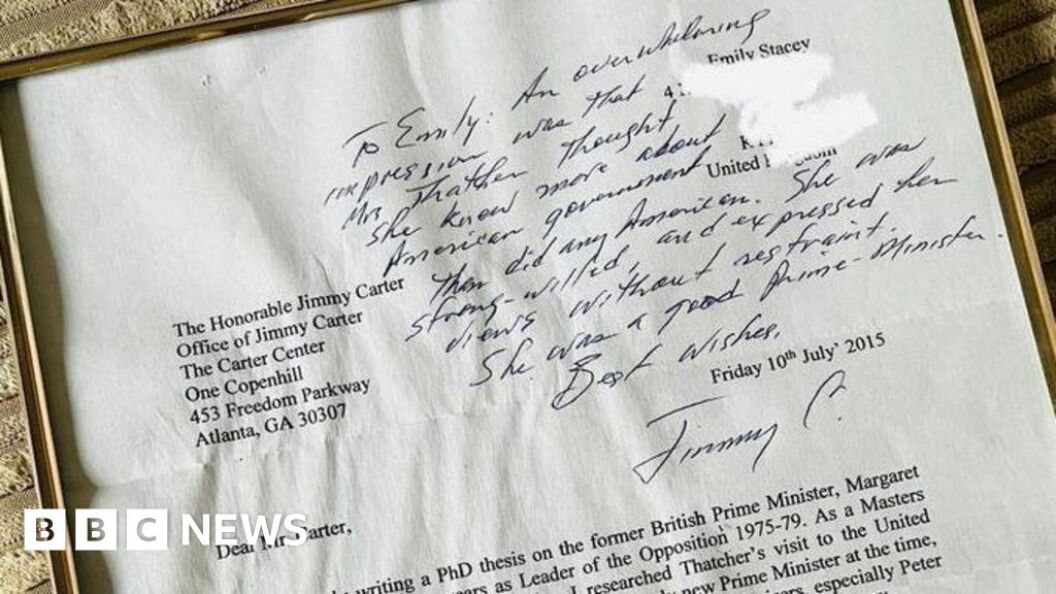 To Emily: An overwhelming
impression was that
Mrs Thatcher thought
she knew more about
American government
than did any American. She was
strong-willed, and expressed her
views without restraint.
She was a good Prime-Minister.
Best wishes,
Jimmy C.
Emily Stacey
41
United Kingdom
The Honorable Jimmy Carter
Office of Jimmy Carter
The Carter Center
One Copenhill
453 Freedom Parkway
Atlanta, GA 30307
Friday 10th July' 2015
Dear Mr Carter,
writing a PhD thesis on the former British Prime Minister, Margaret
as Leader of the Opposition 1975-79. As a Masters
I researched Thatcher's visit to the United
new Prime Minister at the time,
especially Peter
BBC NEWS